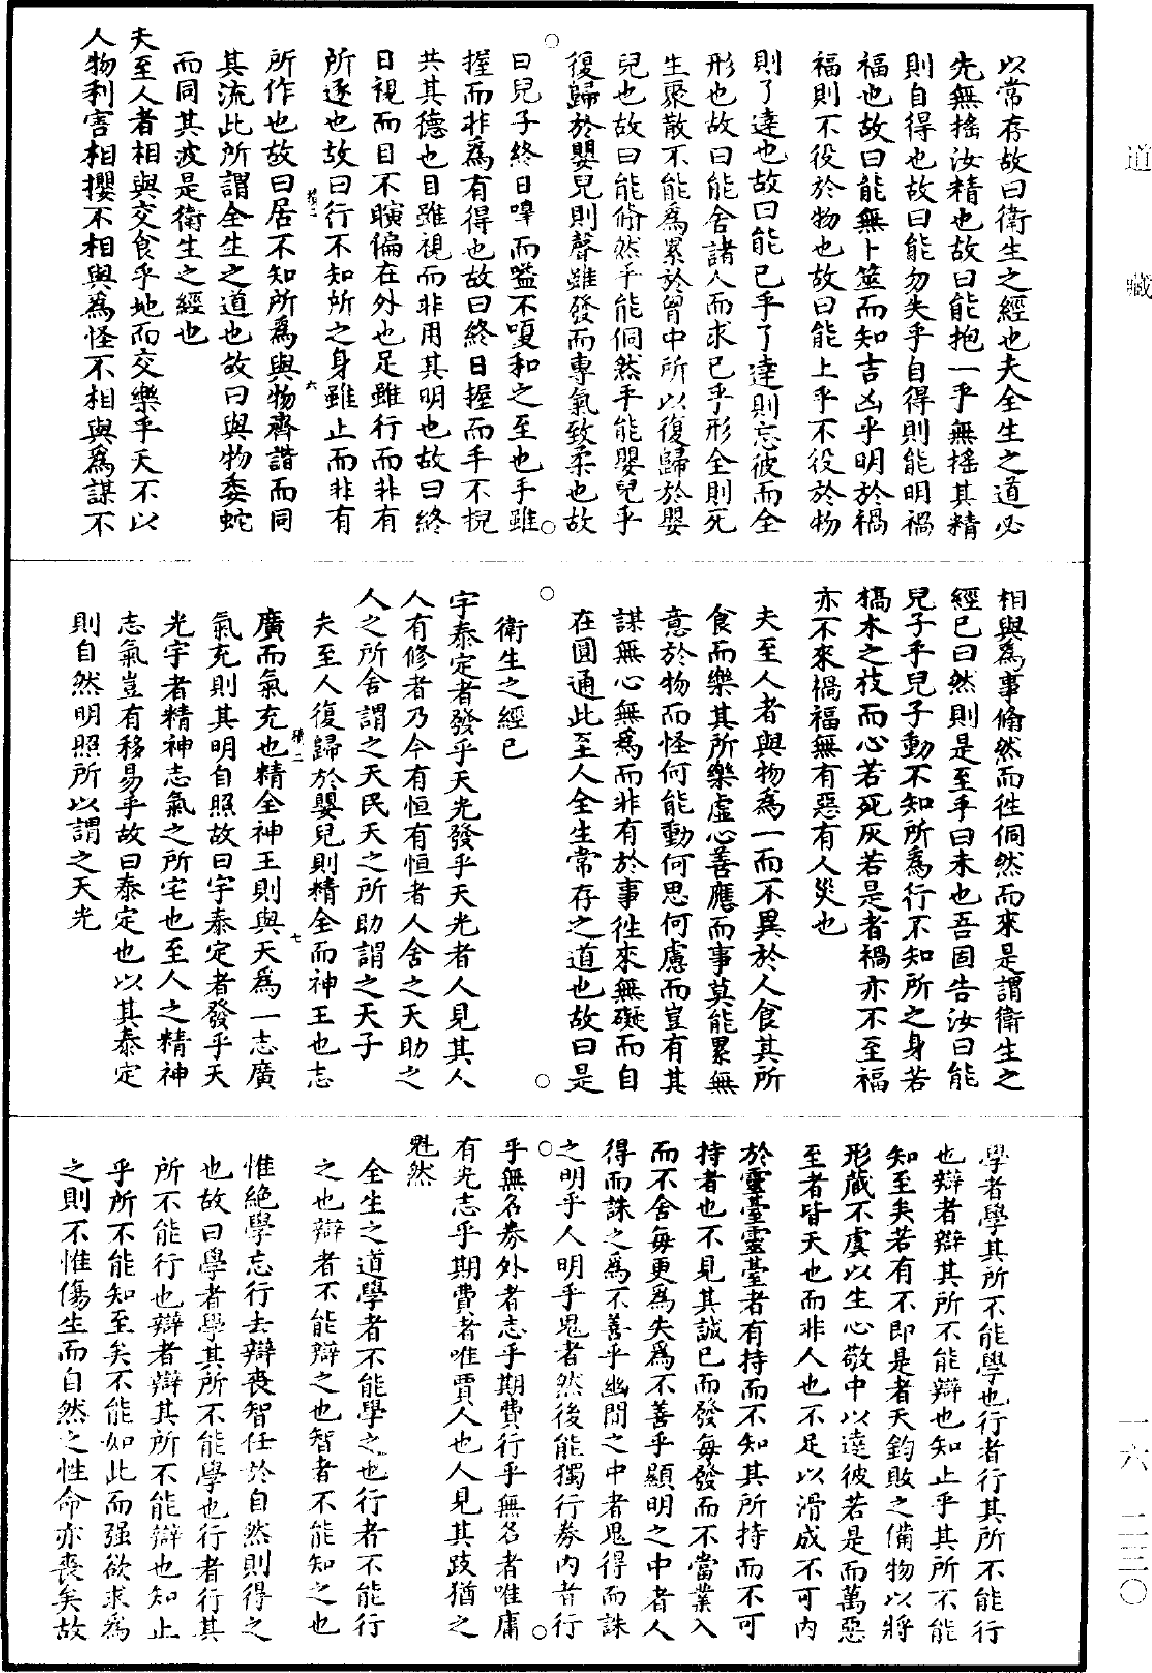 道藏
以常存故曰衛生之經也夫全生之道必
先無搖汝精也故曰能抱一乎無搖其精
則自得也故曰能勿失乎自得則能明禍
福也故曰能無卜筮而知吉凶乎明於禍
福則不役於物也故曰能上乎不役於物
則了達也故曰能已乎了達則忘彼而全
形也故曰能舍諸人而求已乎形全則死
生聚散不能為累於曾中所以復歸於嬰
兒也故曰能翛然乎能侗然乎能嬰兒乎
復歸於嬰兒則聲雖發而專氣致柔也故
曰兒子終日嘷而嗌不嗄和之至也手雖
握而非為有得也故曰終日握而手不掜
共其德也目雖視而非用其明也故曰終
日視而目不瞚偏在外也足雖行而非有
所逐也故曰行不知所之身雖止而非有
所作也故曰居不知所為與物齊諧而同
其流此所謂全生之道也故曰與物委蛇
而同其波是衛生之經也
夫至人者相與交食乎地而交樂乎天不以
人物利害相攖不相與為怪不相與為謀不
相與為事翛然而往侗然而來是謂衛生之
經已曰然則是至乎曰未也吾固告汝曰能
兒子乎兒子動不知所為行不知所之身若
槁木之枝而心若死灰若是者禍亦不至福
亦不來禍福無有惡有人災也
夫至人者與物為一而不異於人食其所
食而樂其所樂虛心善應而事莫能累無
意於物而怪何能動何思何慮而豈有其
謀無心無為而非有於事徃來無礙而自
在圓通此至人全生常存之道也故曰是
衛生之經已
宇泰定者發乎天光發乎天光者人見其人
人有修者乃今有恒有恒者人舍之天助之
人之所舍謂之天民天之所助謂之天子
夫至人復歸於嬰兒則精全而神王也志
廣而氣充也精全神王則與天為一志廣
氣充則其明自照故曰宇泰定者發乎天
光宇者精神志氣之所宅也至人之精神
志氣豈有移易乎故曰泰定也以其泰定
則自然明照所以謂之天光
學者學其所不能學也行者行其所不能行
也辯者辯其所不能辯也知止乎其所不能
知至矣若有不即是者天鈞敗之備物以將
形藏不虞以生心敬中以達彼若是而萬惡
至者皆天也而非人也不足以滑成不可內
於靈臺靈臺者有持而不知其所持而不可
持者也不見其誠已而發每發而不當業入
而不舍每更為失為不善乎顯明之中者人
得而誅之為不善乎幽閒之中者鬼得而誅
之明乎人明乎鬼者然後能獨行券內者行
乎無名券外者志乎期費行乎無名者唯庸
有光志乎期費者唯賈人也人見其跂猶之
魁然
全生之道學者不能學之也行者不能行
之也辯者不能辯之也智者不能知之也
惟絕學忘行去辯喪智任於自然則得之
也故曰學者學其所不能學也行者行其
所不能行也辯者辯其所不能辯也知止
乎所不能知至矣不能如此而强欲求為
之則不惟傷生而自然之性命亦喪矣故
一六 二三〇